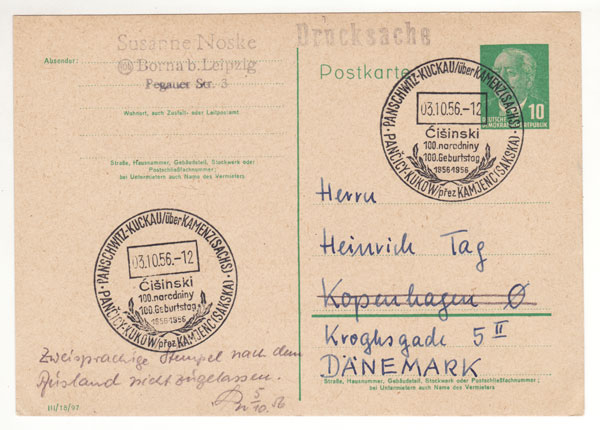 Susanne Noske
Borna b. Leipzig
Pegauer Str. 3
Absender:
Wohnort, auch Zustell- oder Leitpostamt
Straße, Hausnummer, Gebäudeteil, Stockwerk oder
Postschließfachnummer;
bei Untermietern auch Name des Vermieters
PANSCHWITZ-KUCKAU/über KAMENZ(SACHS)
03.10.56.-12
Ćišinski
100.narodniny
100.Geburtstag
1856-1956
PANČICY-KUKOW/přez KAMJENC(SAKSKA)
Zweisprachige Stempel nach dem
Ausland nicht zugelassen.
5/10.56
III/18/97
Drucksache
Postkarte
10
DEUTSCHE
DEMOKRATISCHE REPUBLIK
PANSCHWITZ-KUCKAU/über KAMENZ(SACHS)
03.10.56.-12
Ćišinski
100.narodniny
100.Geburtstag
1856-1956
PANČICY-KUKOW/přez KAMJENC(SAKSKA)
Herrn
Heinrich Tag
Kopenhagen Ø
Kroghsgade 5 II
DÄNEMARK
Straße, Hausnummer, Gebäudeteil, Stockwerk oder Postschließfachnummer;
bei Untermietern auch Name des Vermieters